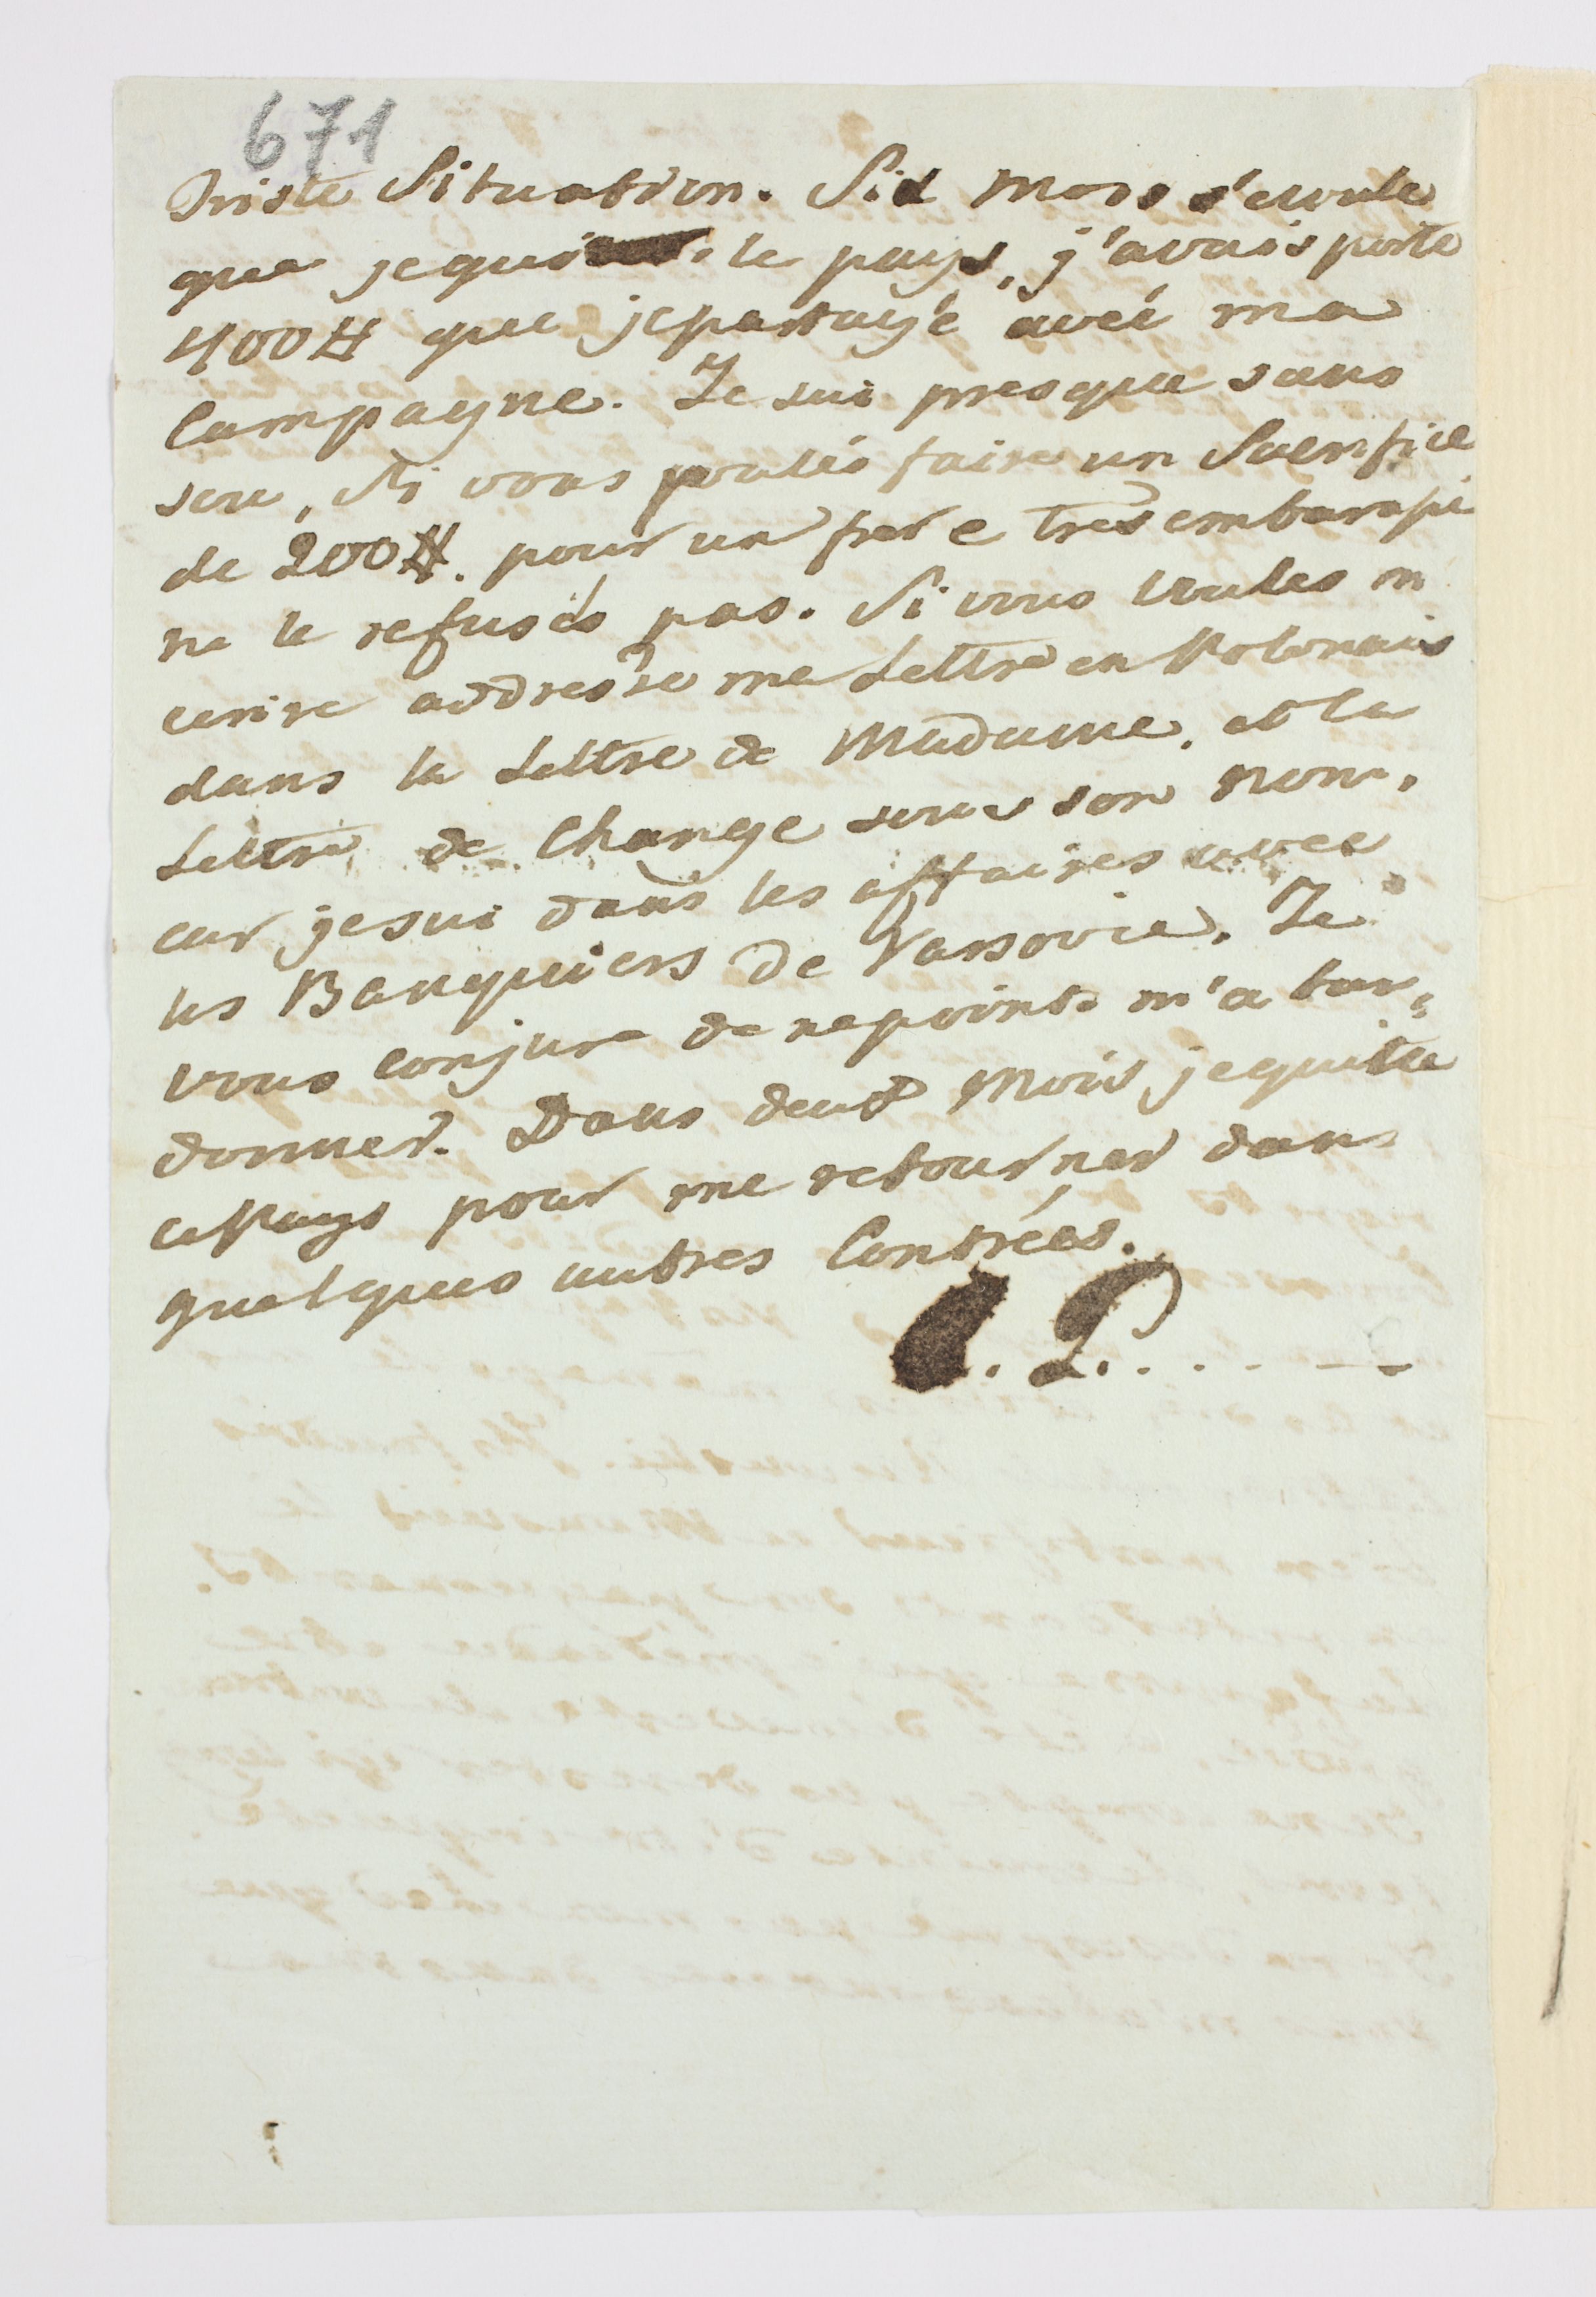 671
Triste Situation. Six mois s'ecoule
que je qui le pays, j'avais porté
400# que je partagé avec ma
Compagne. Je sui presque sans
sou, Si vous poulés faire un Sacrifice
de 200#. pour un frere tres embarassé
ne le refusés pas. Si vous voules m
ecrire addressé me Lettre en Polonais
dans la Lettre de Madame, et la
Lettre de Change sous son nom,
car je sui dans les affaires avec
les Banquiers de Varsovie. Je
vous conjure de ne point m'a ban=
donner. Dans deux mois je quitte
ce Pays pour me retourner dans
quelques autres Contrées.